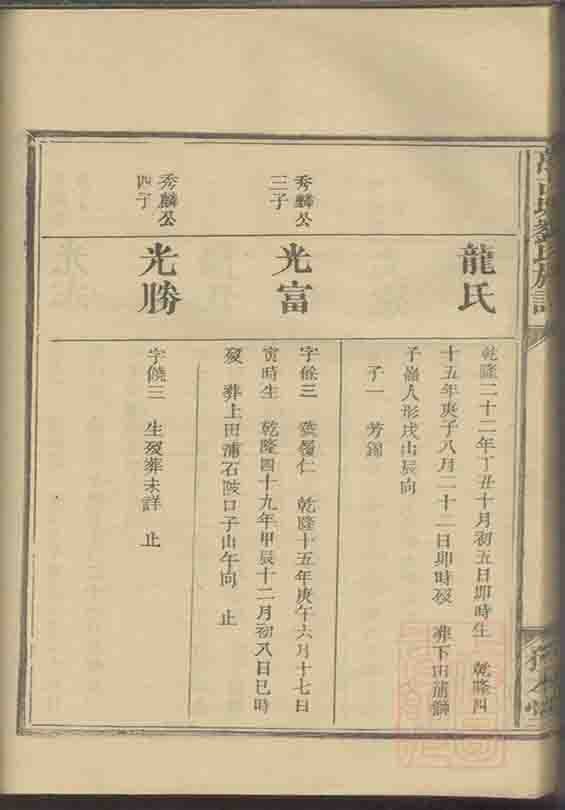 劉氏族譜
龍氏
乾隆二十二年丁丑十月初五日卯時生 乾隆四
十五年庚子八月二十二日卯時歿 葬下田蒲獅
子嶺人形戌山辰向
子一 芳
秀麟公
三子
光富
字饒三 號履仁 乾隆十五年庚午六月十七日
寅時生 乾隆四十九年甲辰十二月初八日巳時
歿 葬上田蒲石陂口子山午向 止
秀麟公
四子
光勝
字饒三 生歿葬未詳 止